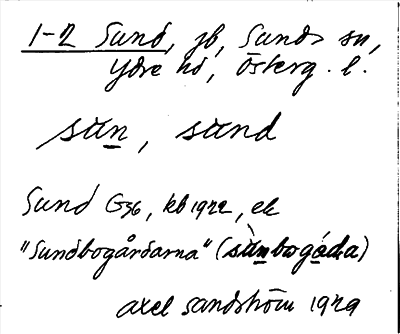 1-2 Sund, jb, Sunds sn,
Ydre hd, Österg. l.
sùn, sùnd
Sund G36, kb 1922, ek
"Sundbogårdarna" (sùnbωgáda)
Axel Sandström 1929